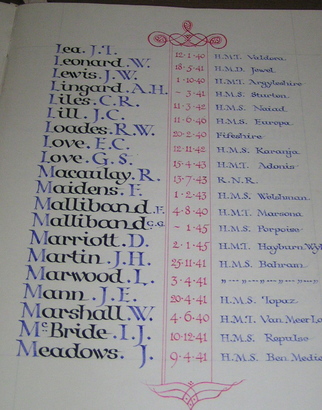 Lea. J.T. 12·1·40 H.M.T. Valdora
Leonard. W. 18·5·41 H.M.D. Jewel
Lewis. J.W. 1·10·40 H.M.T. Argyleshire
Lingard. A.H. – 3·41 H.M.S. Sturton
Liles. C.R. 11·3·42 H.M.S. Naiad
Lill. J.C. 11·6·46 H.M.S. Europa
Loades. R.W. 20·2·40 Fifeshire
Love. E.C. 12·11·42 H.M.S. Karanja
Love. G.S. 15·4·43 H.M.T. Adonis
Macaulay. R. 13·7·43 R.N.R.
Maidens. F. 1·2·43 H.M.S. Welshman
Malliband. F. 4·8·40 H.M.T. Marsona
Malliband G.G. – 1·45 H.M.S. Porpoise
Marriott. D. 2·1·45 H.M.T. Hayburn Wyke
Martin. J.H. 25·11·41 H.M.S. Barham
Marwood. L. 3·4·41
Mann. J.E. 20·4·41 H.M.S. Topaz
Marshall. W. 4·6·40 H.M.T. Van Meer
McBride. I.J. 10·12·41 H.M.S. Repulse
Meadows. J. 9·4·41 H.M.S. Ben